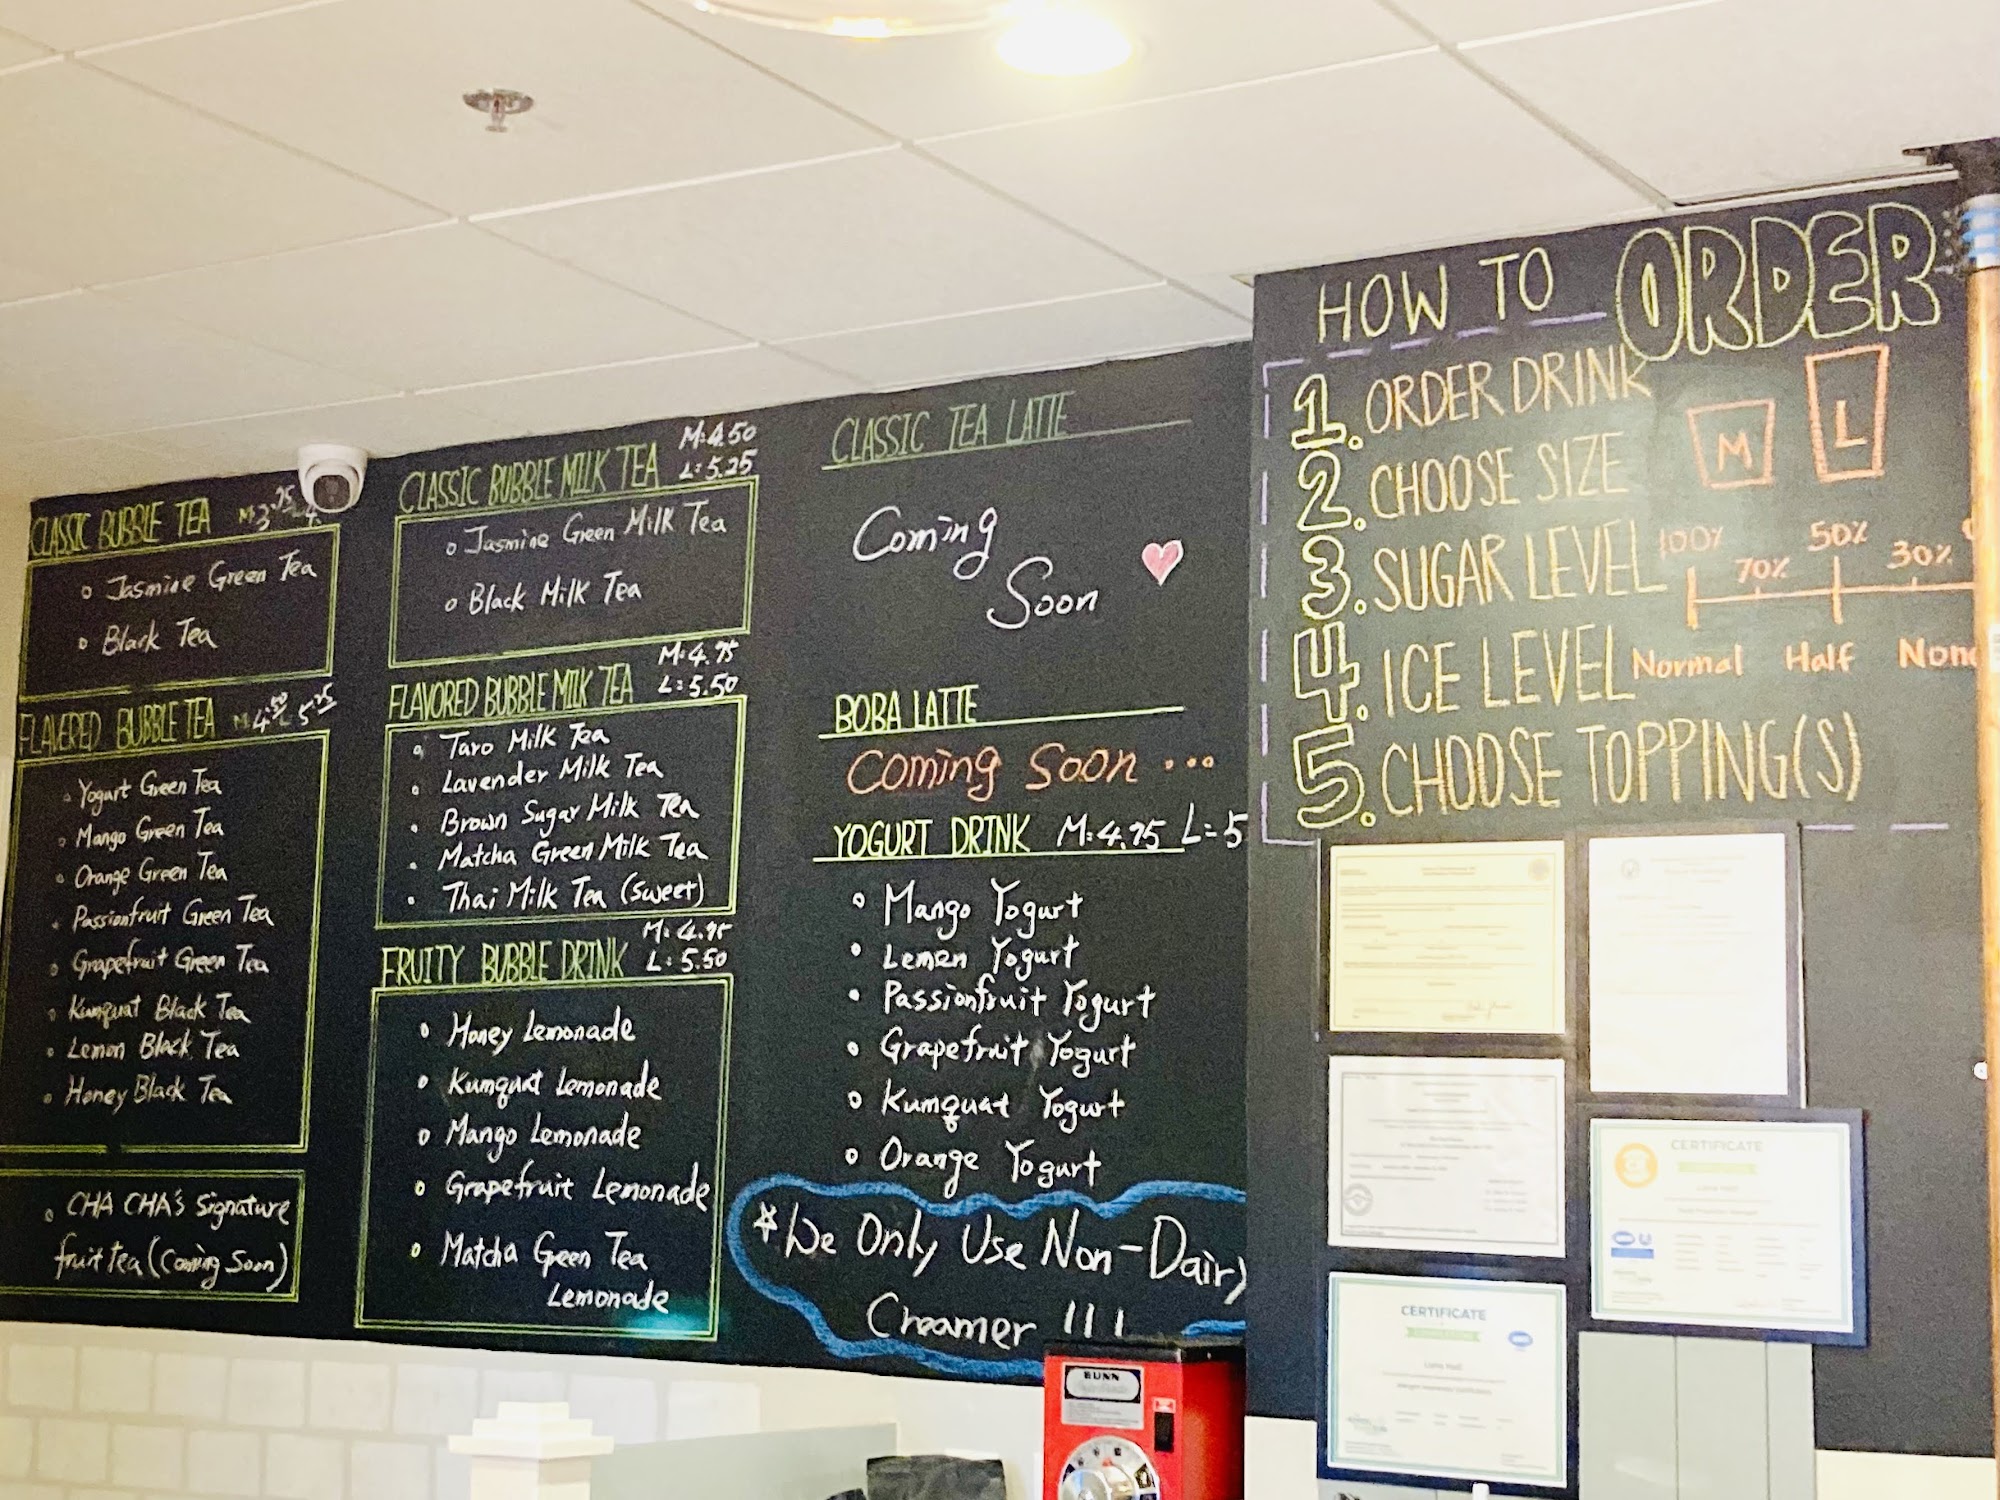 CLASSIC BUBBLE TEA M:3.75 L 4.
Jasmine Green Tea
Black Tea
FLAVERED BUBBLE TEA M 4.50 L 5.25
Yogurt Green Tea
Mango Green Tea
Orange Green Tea
Passionfruit Green Tea
Grapefruit Green Tea
Kumquat Black Tea
Lemon Black Tea
Honey Black Tea
CHA CHA'S Signature
fruit tea (Coming Soon)
CLASSIC BUBBLE MILK TEA M:4.50
L:5.25
Jasmine Green Milk Tea
Black Milk Tea
FLAVORED BUBBLE MILK TEA M:4.75
L:5.50
Taro Milk Tea
Lavender Milk Tea
Brown Sugar Milk Tea
Matcha Green Milk Tea
Thai Milk Tea (sweet)
FRUITY BUBBLE DRINK M:4.75
L:5.50
Honey Lemonade
Kumquat Lemonade
Mango Lemonade
Grapefruit Lemonade
Matcha Green Tea
Lemonade
CLASSIC TEA LATTE
Coming
Soon
BOBA LATTE
Coming Soon ...
YOGURT DRINK M:4.75 L=5
Mango Yogurt
Lemen Yogurt
Passionfruit Yogurt
Grapefruit Yogurt
Kumquat Yogurt
Orange Yogurt
*We Only Use Non-Dairy
Creamer !!!
HOW TO ORDER
1. ORDER DRINK
2. CHOOSE SIZE M L
3. SUGAR LEVEL 100% 70% 50% 30%
4. ICE LEVEL Normal Half None
5. CHOOSE TOPPING(S)
CERTIFICATE
CERTIFICATE
BUNN